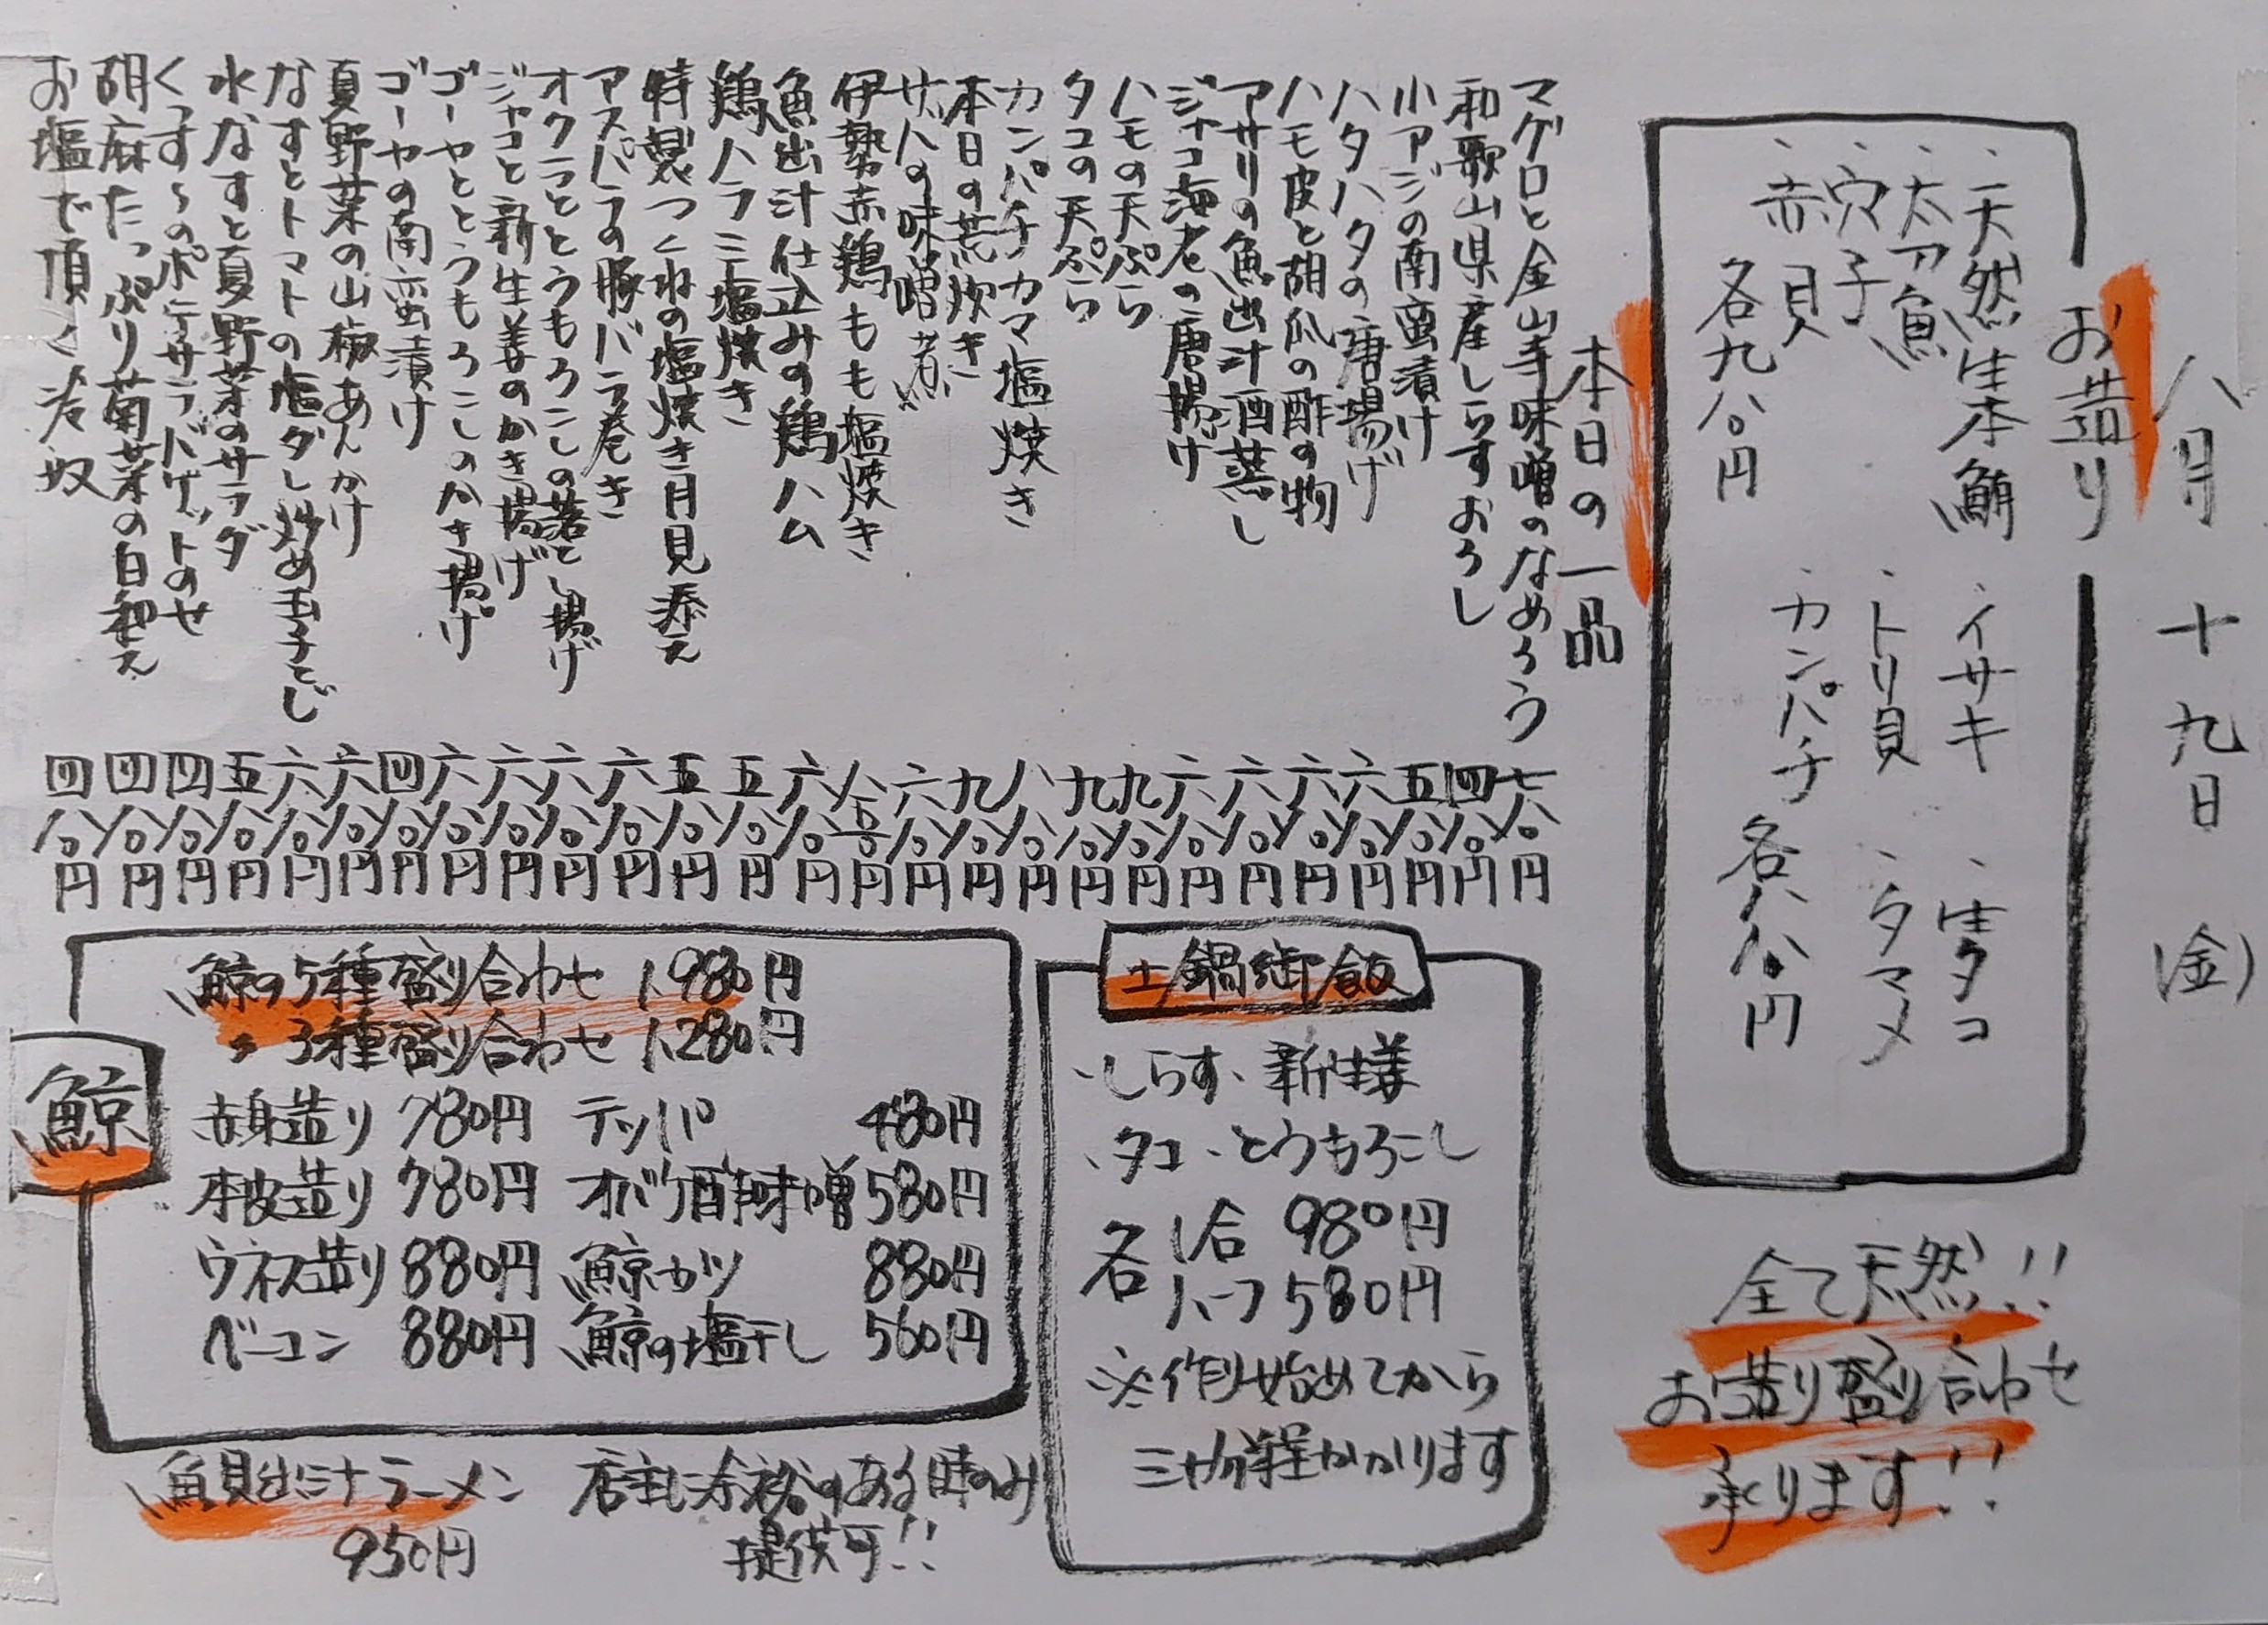 八月十九日(金)
お造り
・天然生本鮪
・太刀魚
・穴子
・赤貝
各九八〇円
・イサキ
・トリ貝
・カンパチ
・生タコ
・タマメ
各八八〇円
全て天然!!
お造り盛り合わせ
承ります!!
本日の一品
マグロと金山寺味噌のなめろう 七八〇円
和歌山県産しらすおろし 四八〇円
小アジの南蛮漬け 五八〇円
ハタハタの唐揚げ 六八〇円
ハモ皮と胡瓜の酢の物 六八〇円
アサリの魚出汁酒蒸し 六八〇円
ジャコ海老の唐揚げ 六八〇円
ハモの天ぷら 九八〇円
タコの天ぷら 九八〇円
カンパチカマ塩焼き 八八〇円
本日の荒炊き 九八〇円
サバの味噌煮 六八〇円
伊勢赤鶏もも塩焼き 八八〇円
魚出汁仕込みの鶏ハム 六八〇円
鶏ハラミ塩焼き 五八〇円
特製つくねの塩焼き月見添え 五八〇円
アスパラの豚バラ巻き 六八〇円
オクラととうもろこしの落とし揚げ 六八〇円
ジャコと新生姜のかき揚げ 六八〇円
ゴーヤととうもろこしのかき揚げ 六八〇円
ゴーヤの南蛮漬け 四八〇円
夏野菜の山椒あんかけ 六八〇円
なすとトマトの塩ダレ炒め玉子とじ 六八〇円
水なすと夏野菜のサラダ 五八〇円
くっす〜のポテサラバゲットのせ 四八〇円
胡麻たっぷり菊菜の白和え 四八〇円
お塩で頂く冷奴 四八〇円
土鍋御飯
・しらす・新生姜
・タコ・とうもろこし
各 1合 980円
ハーフ 580円
※作り始めてから
三十分程かかります
鯨
鯨の5種盛り合わせ 1,980円
〃 3種盛り合わせ 1,280円
赤身造り 780円 テッパ 480円
本皮造り 780円 オバケ酢味噌 580円
ウネス造り 880円 鯨カツ 880円
ベーコン 880円 鯨の塩干し 560円
魚貝出汁ラーメン 店主に余裕のある時のみ
950円 提供可!!